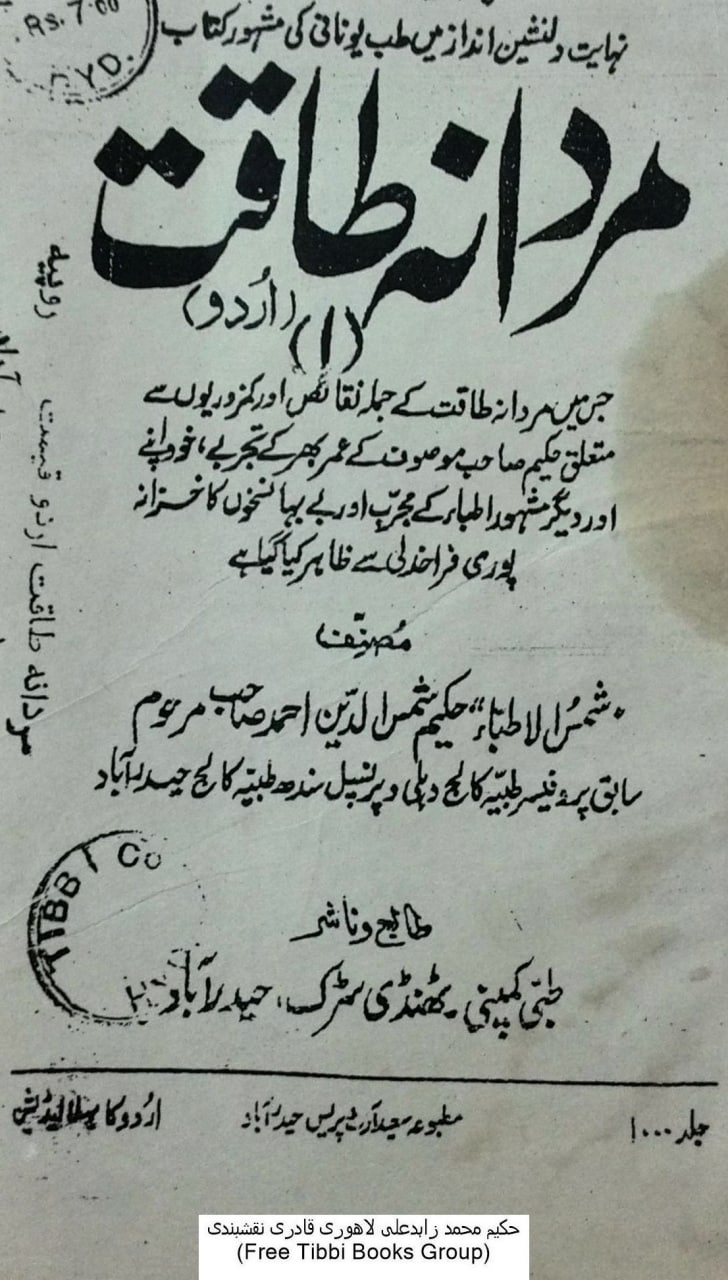 Rs. 7.00
HYD.
نہایت دلنشین انداز میں طب یونانی کی مشہور کتاب
مردانہ طاقت
(اُردو)
(۱)
جس میں مردانہ طاقت کے جملہ نقائص اور کمزوریوں سے
متعلق حکیم صاحب موصوف کے عمر بھر کے تجربے، خود اپنے
اور دیگر مشہور اطباء کے مجرّب اور بے بہا نسخوں کا خزانہ
پوری فراخدلی سے ظاہر کیا گیا ہے
مُصنّف
"شمسُ الاطباء" حکیم شمس الدّین احمد صاحب مرحوم
سابق پروفیسر طبیّہ کالج دہلی و پرنسپل سندھ طبیّہ کالج حیدرآباد
طابع و ناشر
طبّی کمپنی۔ ٹھنڈی سڑک، حیدرآباد
TIBBI Co
HYD
جلد ۱۰۰۰
مطبوعہ سعید آرٹ پریس حیدرآباد
اُردو کا پہلا ایڈیشن
مردانہ طاقت اردو قیمت روپیہ
حکیم محمد زاہد علی لاھوری قادری نقشبندی
(Free Tibbi Books Group)